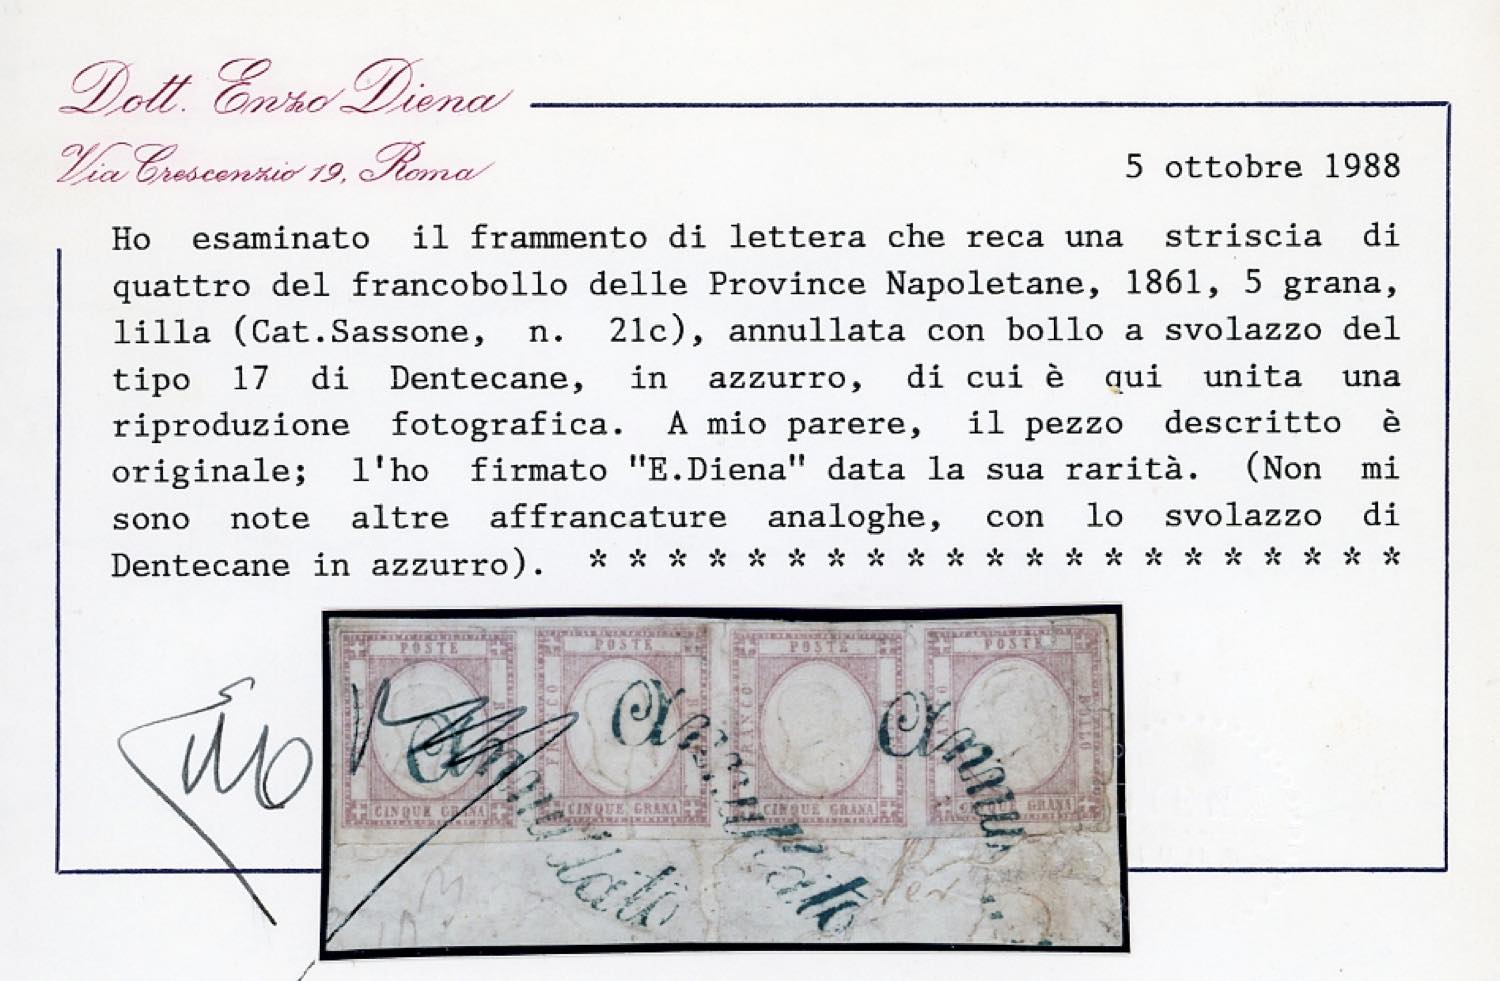 Dott. Enzo Diena
Via Crescenzio 19, Roma
5 ottobre 1988
Ho esaminato il frammento di lettera che reca una striscia di
quattro del francobollo delle Province Napoletane, 1861, 5 grana,
lilla (Cat.Sassone, n. 21c), annullata con bollo a svolazzo del
tipo 17 di Dentecane, in azzurro, di cui è qui unita una
riproduzione fotografica. A mio parere, il pezzo descritto è
originale; l'ho firmato "E.Diena" data la sua rarità. (Non mi
sono note altre affrancature analoghe, con lo svolazzo di
Dentecane in azzurro). * * * * * * * * * * * * * * * * * * * * *
POSTE POSTE POSTE POSTE
FRANCO FRANCO BOLLO
Annullato Annullato Annu
CINQUE GRANA CINQUE GRANA CINQUE GRANA CINQUE GRANA